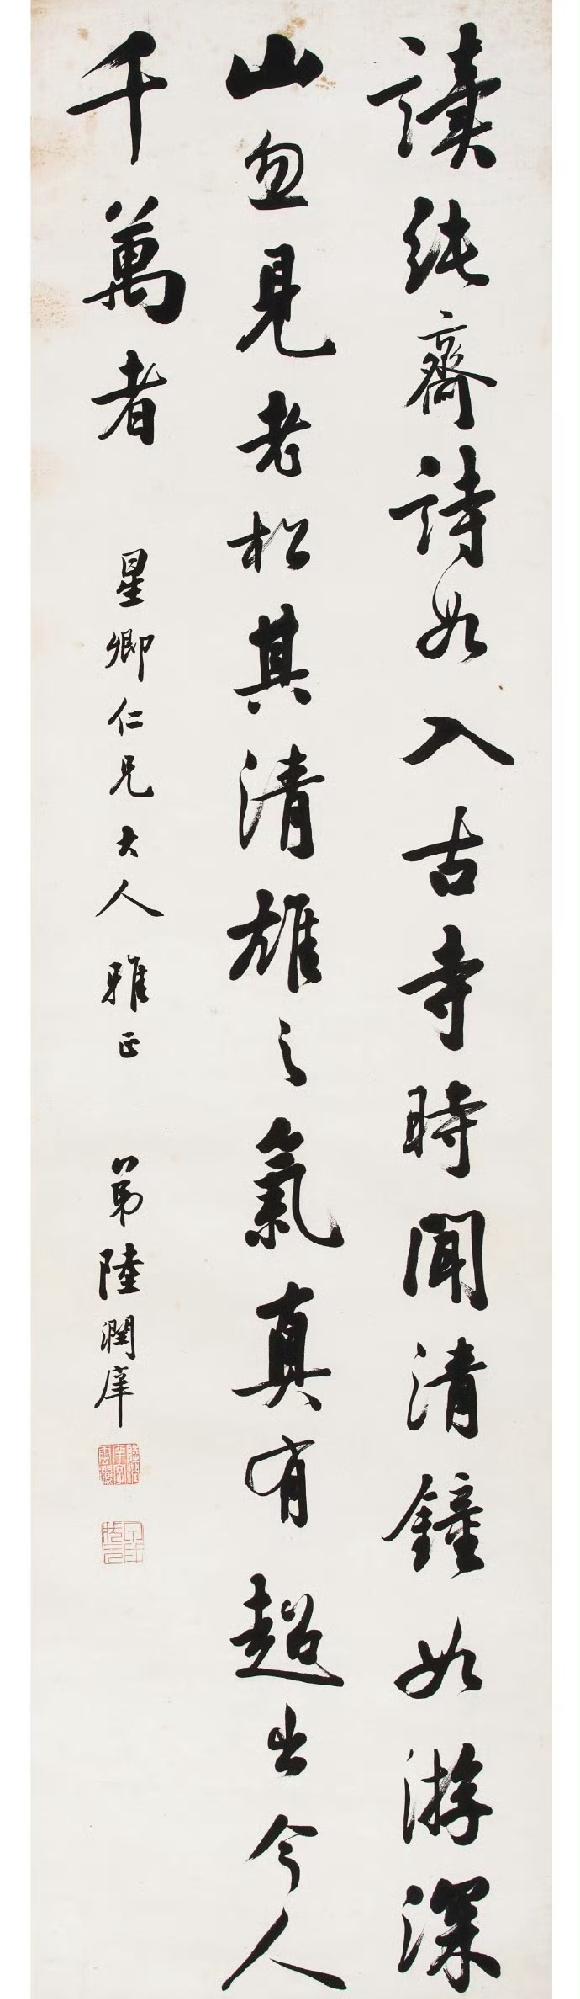 讀純齋詩如入古寺時聞清鐘如游深
山忽見老松其清雄之氣真有超出今人
千萬者
星卿仁兄大人雅正
弟陸潤庠